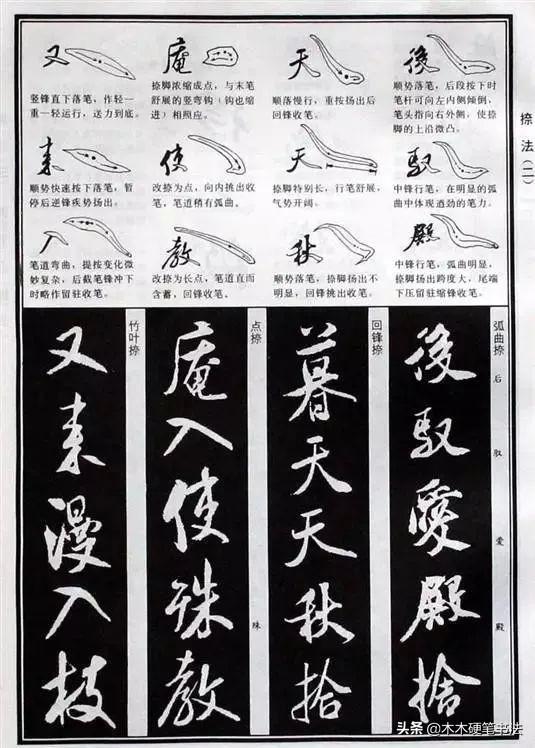 捺法(二)
後
顺势落笔，后段按下时
笔杆可向左内侧倾倒，
笔头指向右外侧，使捺
脚的上沿微凸。
馭
中锋行笔，在明显的弧
曲中体现遒劲的笔力。
殿
中锋行笔，弧曲明显，
捺脚扬出跨度大，尾端
下压留驻缩锋收笔。
天
顺落慢行，重按扬出后
回锋收笔。
天
捺脚特别长，行笔舒展，
气势开阔。
秋
顺势落笔，捺脚扬出不
明显，回锋挑出收笔。
庵
捺脚浓缩成点，与末笔
舒展的竖弯钩（钩也缩
进）相照应。
使
改捺为点，向内挑出收
笔，笔道稍有弧曲。
教
改捺为长点，笔道直而
含蓄，回锋收笔。
又
竖锋直下落笔，作轻一
重一轻运行，送力到底。
来
顺势快速按下落笔，暂
停后逆锋疾势扬出。
入
笔道弯曲，提按变化微
妙复杂，后截笔锋冲下
时略作留驻收笔。
弧曲捺
后 驭 爱 殿
後馭愛殿捨
回锋捺
暮天天秋拾
点捺
殊
庵入使殊教
竹叶捺
又来漫入枝
头条 @木木硬笔书法